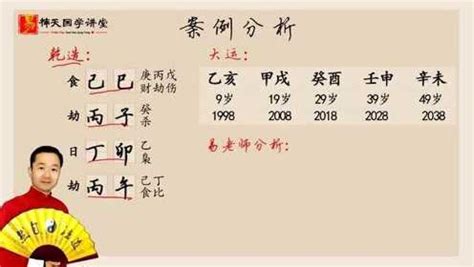 易 择天国学讲堂
案例分析
乾造：
大运：
食 己巳 庚丙戊
财劫伤
劫 丙子 癸
杀
日 丁卯 乙
枭
劫 丙午 己丁
食比
乙亥 甲戌 癸酉 壬申 辛未
9岁 19岁 29岁 39岁 49岁
1998 2008 2018 2028 2038
易老师分析：